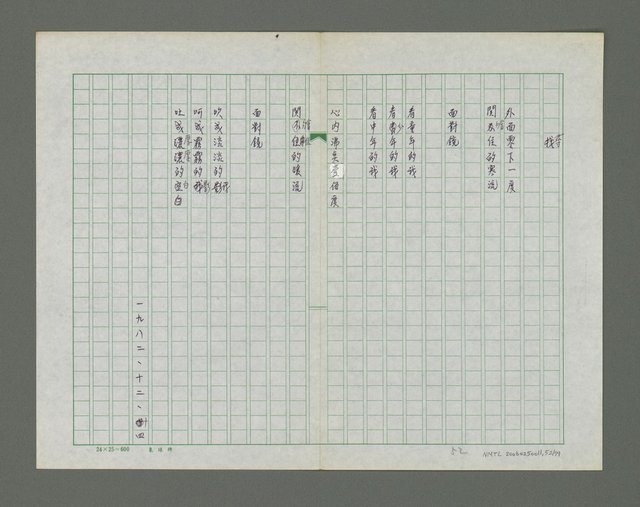 我
外面零下一度
關不住的寒流
面對鏡
看童年的我
看少年的我
看中年的我
心內沸点壹佰度
關不住的暖流
面對鏡
吹成流流的影
呵成霧霧的我
吐成濃濃的空白
一九八二、十二、廿四
24×25=600
52
NMTL 20060250011,52/99